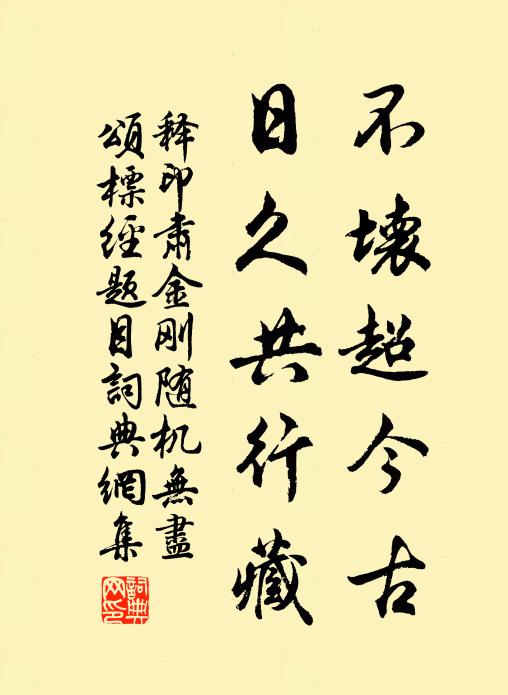 不壞超今古
日久共行藏
释印肃金刚随机無盡
頌標經题目詞典網集
詞典網印